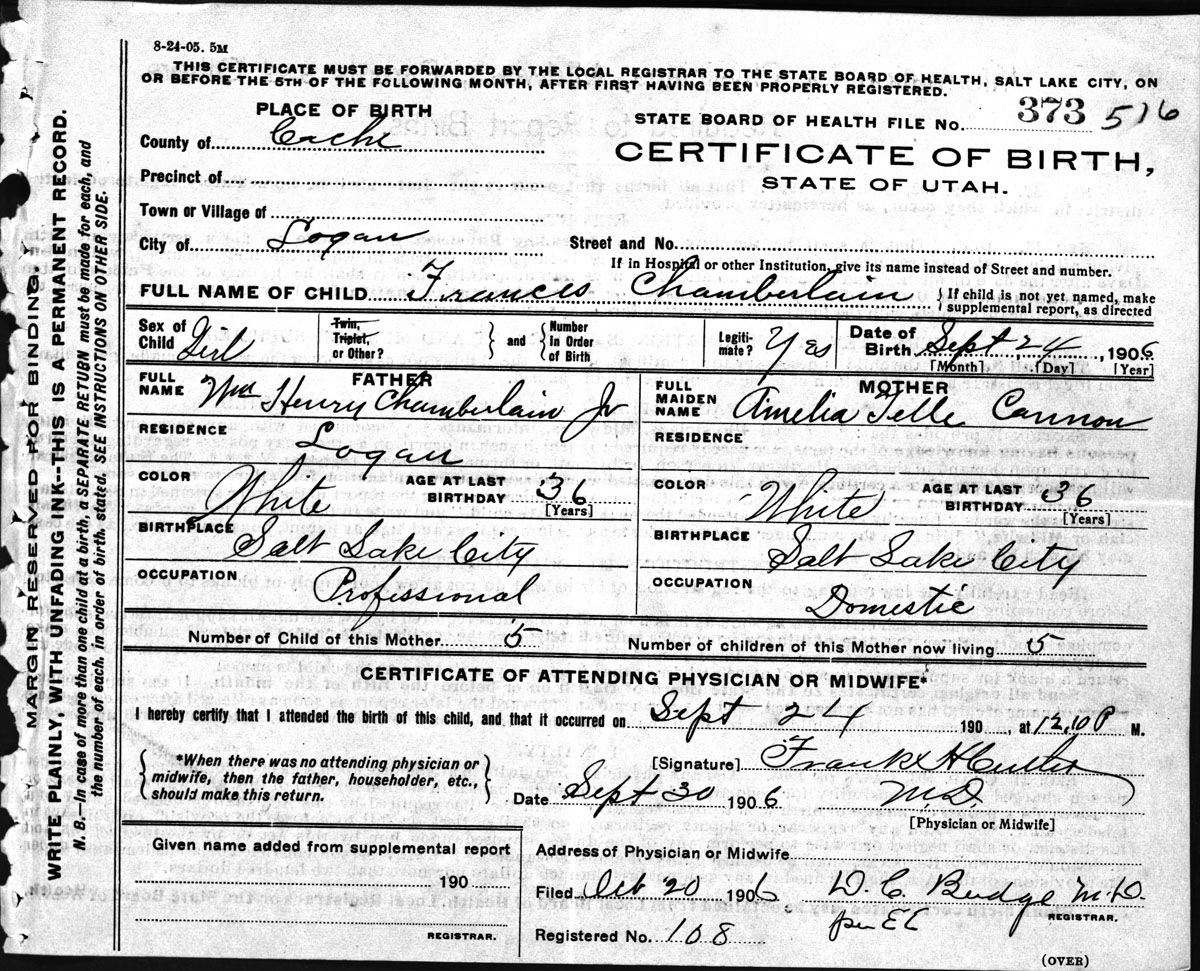 8-24-05. 5M
THIS CERTIFICATE MUST BE FORWARDED BY THE LOCAL REGISTRAR TO THE STATE BOARD OF HEALTH, SALT LAKE CITY, ON
OR BEFORE THE 5TH OF THE FOLLOWING MONTH, AFTER FIRST HAVING BEEN PROPERLY REGISTERED.
PLACE OF BIRTH
STATE BOARD OF HEALTH FILE No. 373 516
County of Cache
CERTIFICATE OF BIRTH,
STATE OF UTAH.
Precinct of
Town or Village of
City of Logan
Street and No.
If in Hospital or other Institution, give its name instead of Street and number.
FULL NAME OF CHILD Frances Chamberlain { If child is not yet named, make
supplemental report, as directed
Sex of Child Girl
Twin, Triplet, or Other?
and
Number In Order of Birth
Legiti- mate? Yes
Date of Birth Sept 24, 1906
[Month] [Day] [Year]
FATHER
FULL NAME Wm Henry Chamberlain Jr
MOTHER
FULL MAIDEN NAME Amelia Telle Cannon
RESIDENCE Logan
RESIDENCE
COLOR White AGE AT LAST BIRTHDAY 36 [Years]
COLOR White AGE AT LAST BIRTHDAY 36 [Years]
BIRTHPLACE Salt Lake City
BIRTHPLACE Salt Lake City
OCCUPATION Professional
OCCUPATION Domestic
Number of Child of this Mother 5
Number of children of this Mother now living 5
CERTIFICATE OF ATTENDING PHYSICIAN OR MIDWIFE*
I hereby certify that I attended the birth of this child, and that it occurred on Sept 24 190 , at 12,10 P M.
{ *When there was no attending physician or
midwife, then the father, householder, etc.,
should make this return. }
[Signature] Frank H Cutler
M.D.
[Physician or Midwife]
Date Sept 30 1906
Given name added from supplemental report
190
REGISTRAR.
Address of Physician or Midwife
Filed Oct 20 1906 D. C. Budge M.D.
REGISTRAR.
per EC
Registered No. 108
(OVER)
MARGIN RESERVED FOR BINDING
WRITE PLAINLY, WITH UNFADING INK--THIS IS A PERMANENT RECORD.
N. B.—In case of more than one child at a birth, a SEPARATE RETURN must be made for each, and
the number of each, in order of birth, stated. SEE INSTRUCTIONS ON OTHER SIDE.